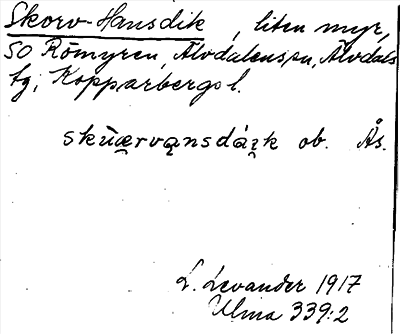 Skorv-Hansdik, liten myr,
SO Römyren, Älvdalens sn, Älvdals
tg, Kopparbergs l.
ob. Ås.
L. Levander 1917
Ulma 339:2